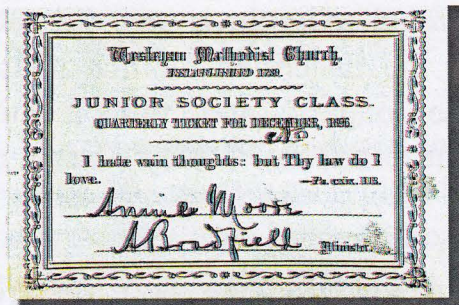 Wesleyan Methodist Church.
ESTABLISHED 1739.
JUNIOR SOCIETY CLASS.
QUARTERLY TICKET FOR DECEMBER, 1896.
I hate vain thoughts: but Thy law do I
love. —Ps. cxix. 113.
Annie Moore
ABradfield Minister.